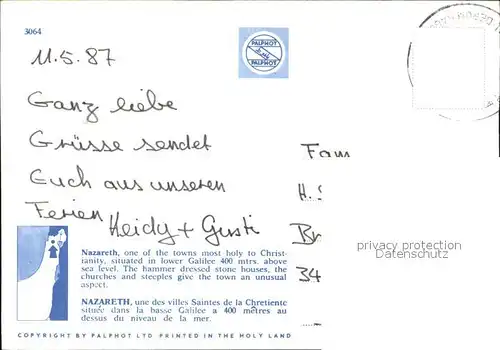 3064
PALPHOT
PALPHOT
11.5.87
Ganz liebe
Grüsse sendet
Euch aus unseren
Ferien Heidy + Gusti
Fam
H.
Br
34
privacy protection
delcampe.net
Nazareth, one of the towns most holy to Christ-
ianity, situated in lower Galilee 400 mtrs. above
sea level. The hammer dressed stone houses, the
churches and steeples give the town an unusual
aspect.
NAZARETH, une des villes Saintes de la Chretiente
située dans la basse Galilee a 400 mètres au
dessus du niveau de la mer.
COPYRIGHT BY PALPHOT LTD PRINTED IN THE HOLY LAND